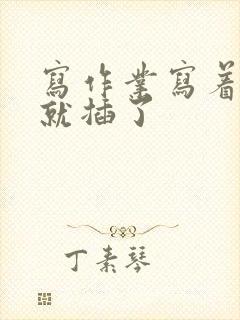 寫作業寫着
就插了
丁素琴